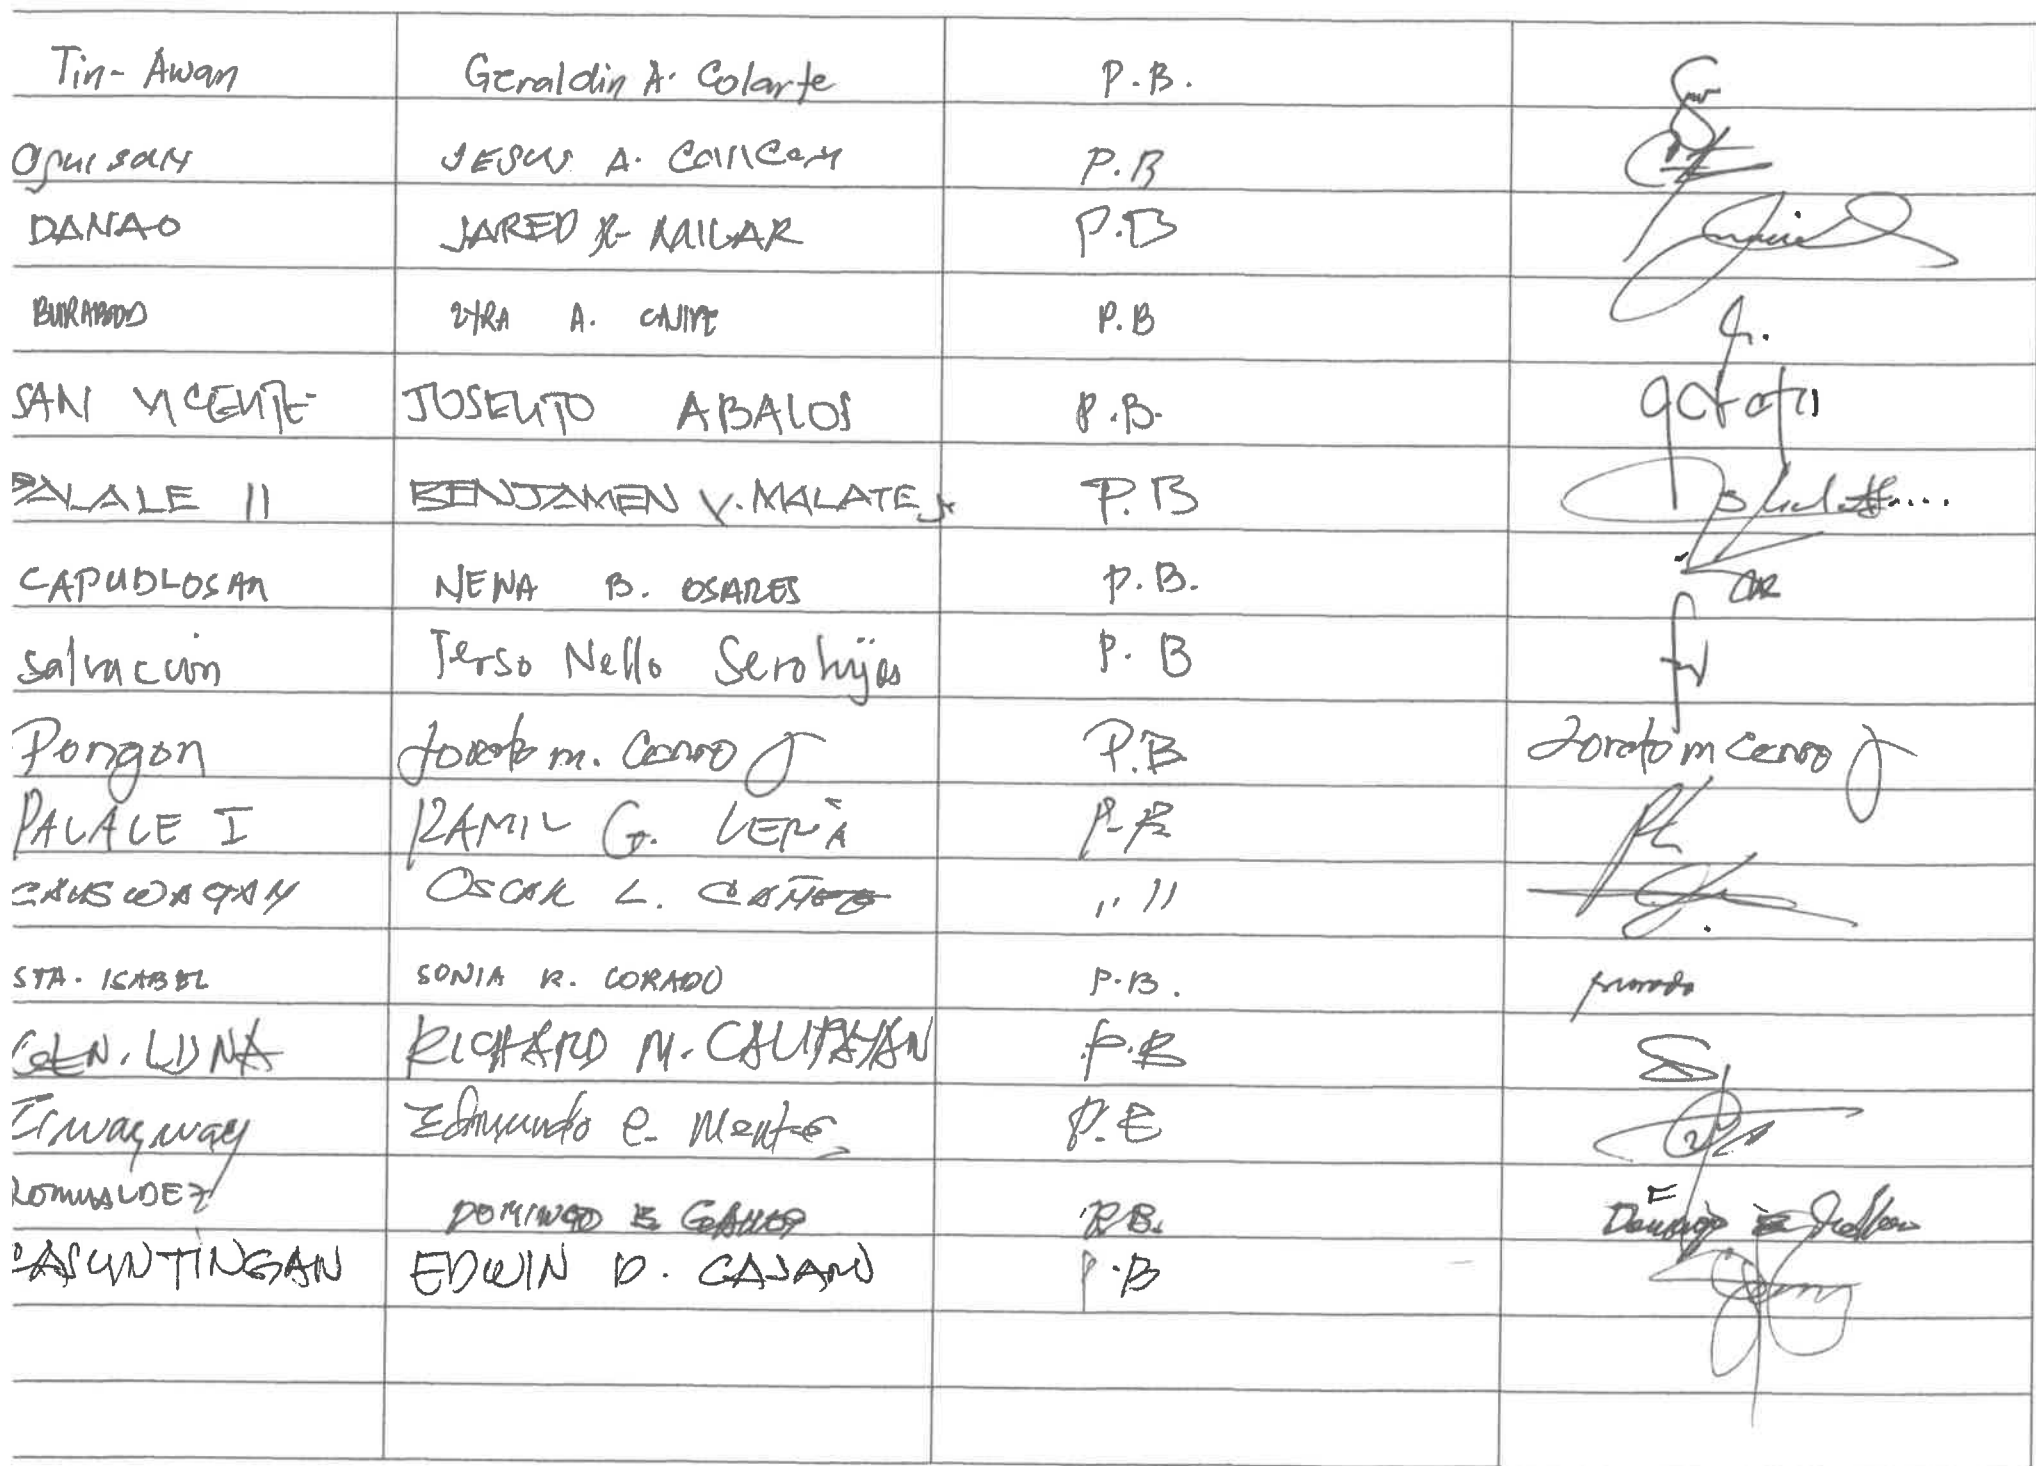 Tin-Awan Geraldin A. Colarte P.B.
Oguisan JESUS A. P.B
DANAO JARED R. MILAR P.B
BURABOD ZYRA A. CAÑETE P.B
SAN VICENTE JOSELITO ABALOS P.B.
PALALE II BENJAMEN V. MALATE Jr P.B
CAPUDLOSAN NENA B. OSARES P.B.
Salvacion Terso Nello Serohijos P.B
Pongon Loreto m. Cerro Jr P.B Loreto m Cerro Jr
PALALE I RAMIL G. P.B
CAUSWAGAN OSCAR L. " "
STA. ISABEL SONIA R. CORADO P.B.
GEN. LUNA RICHARD M. CALIPAYAN P.B
Liwayway Edmundo C. P.B
ROMUALDEZ DOMINGO E P.B. Domingo E
CASUNTINGAN EDWIN D. P.B